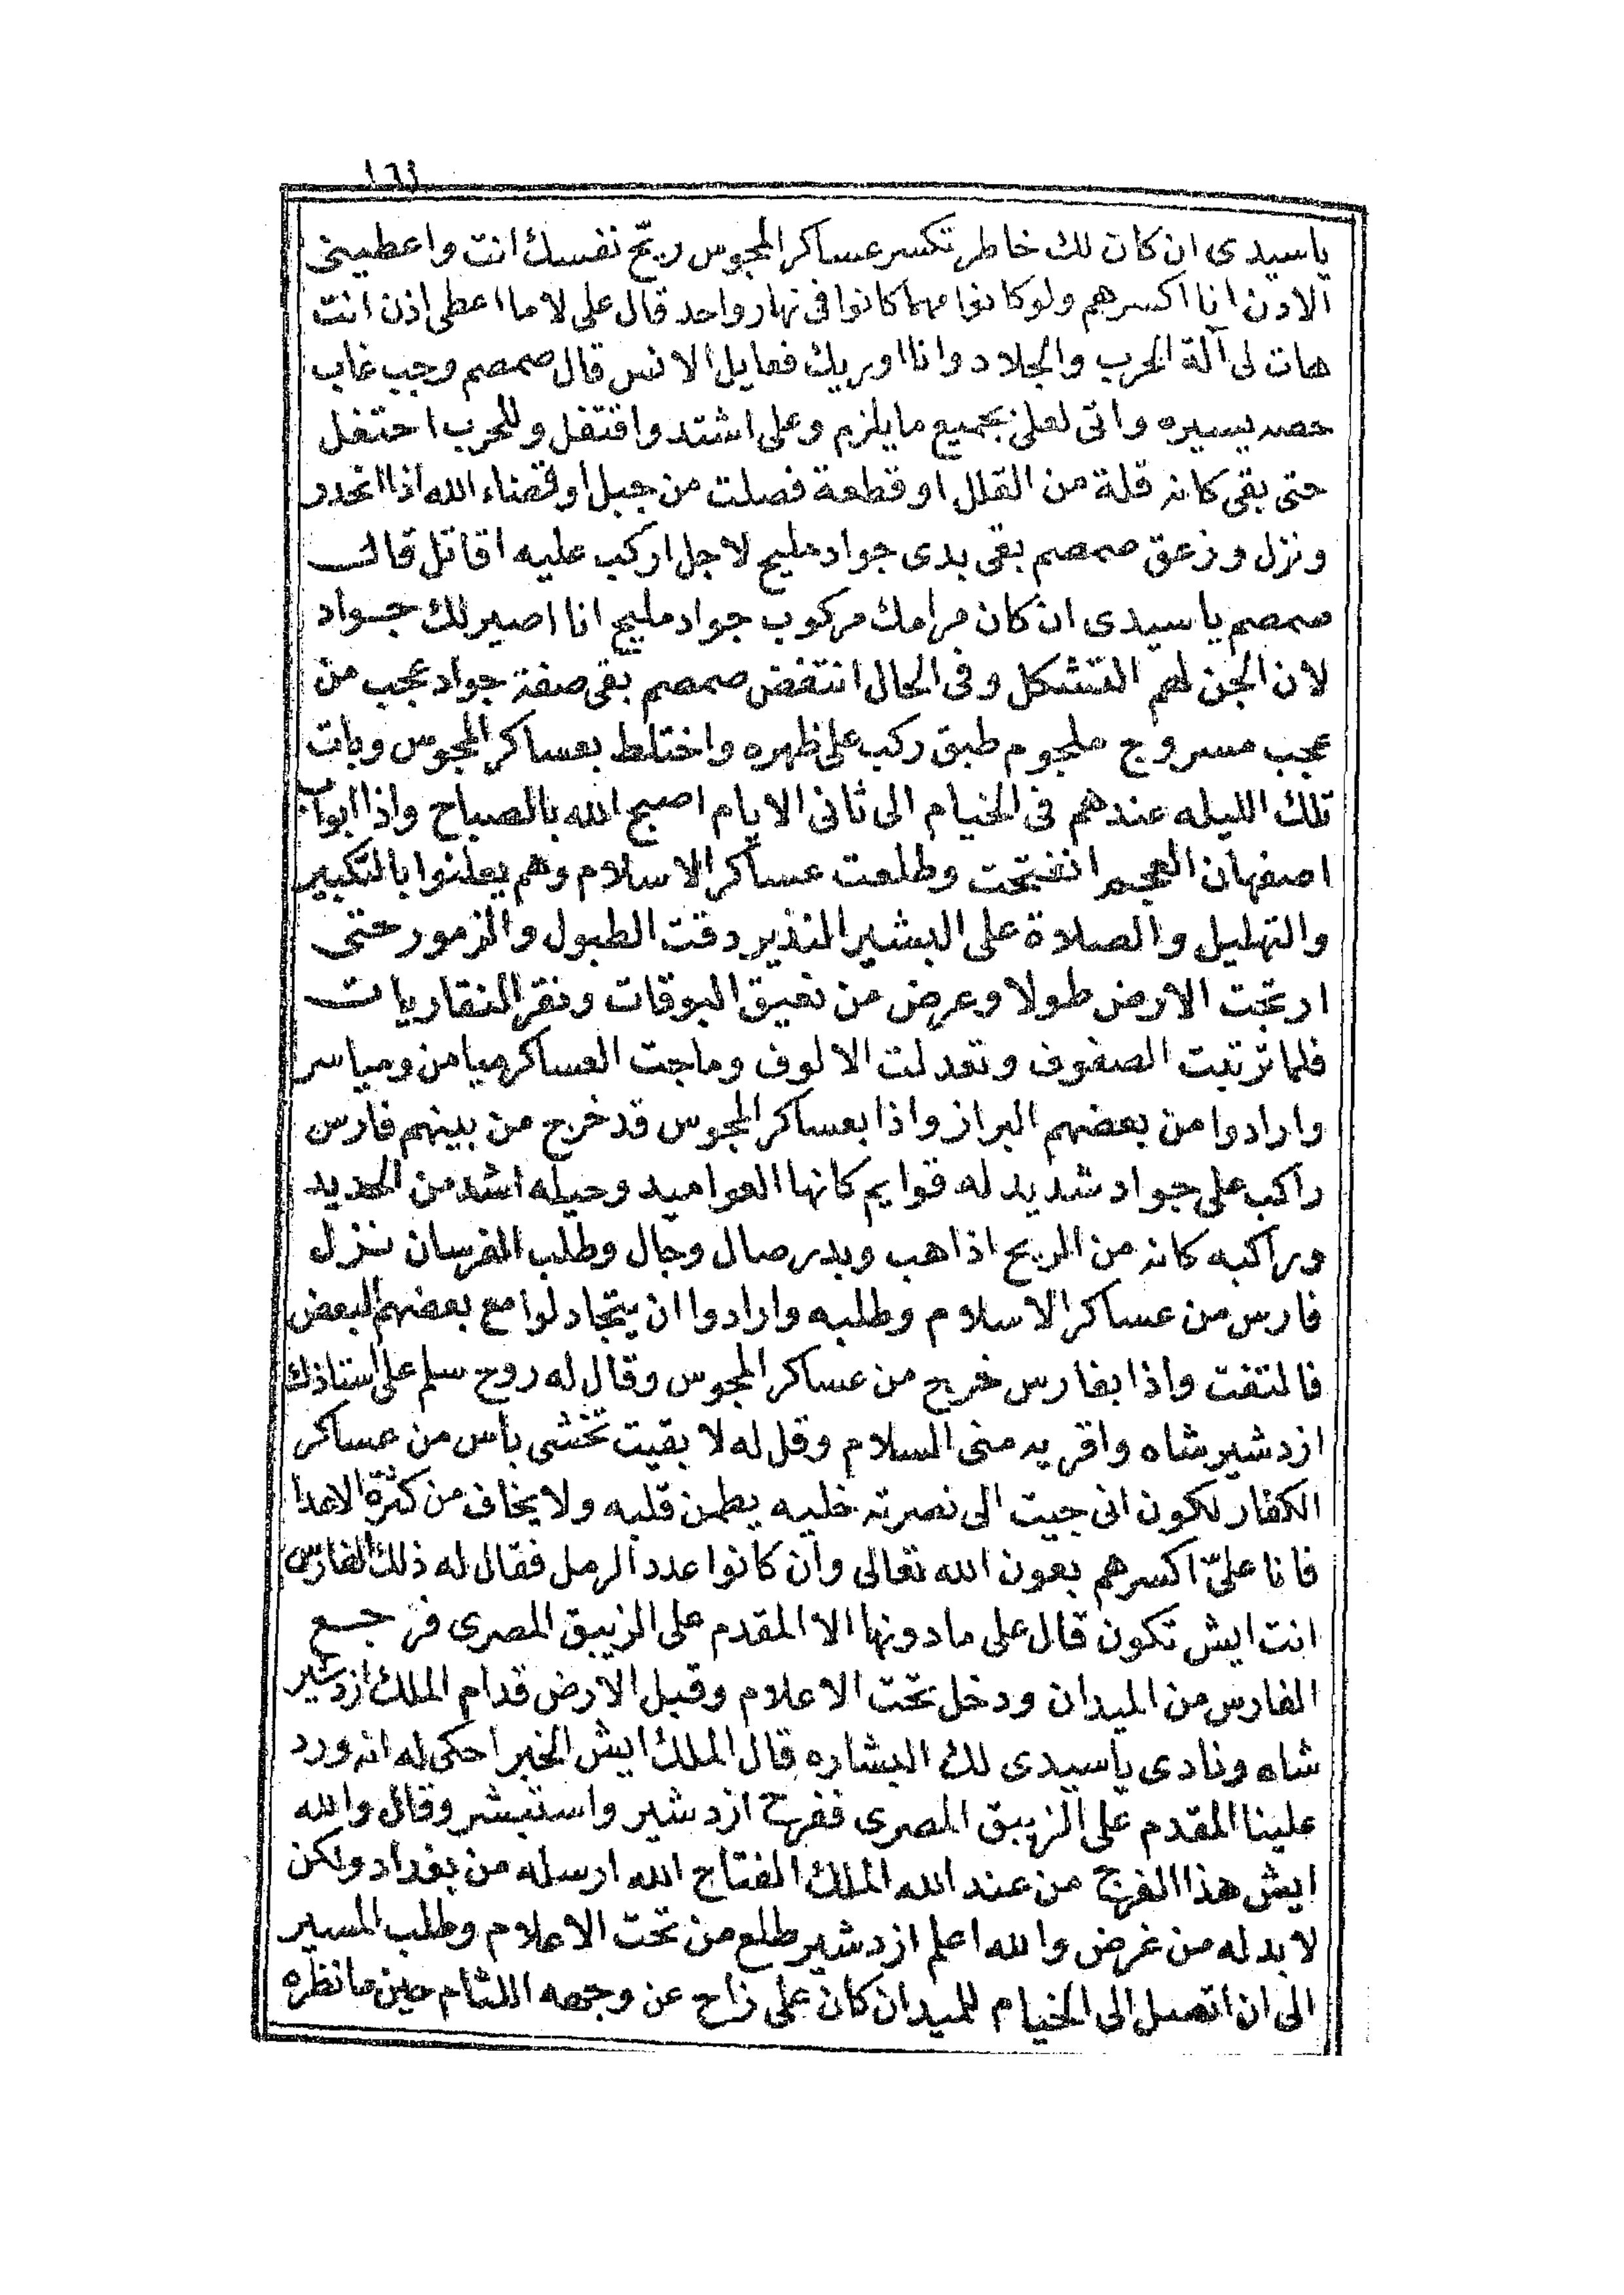 ١٦١
ياسيدى ان كان لك خاطر تكسر عساكر المجوس ريّح نفسك انت واعطينى
الادن انا اكسرهم ولو كانوا مهما كانوا فى نهار واحد قال على لا ما اعطى اذن انت
هات لى آلة الحرب والجلاد وانا اوريك فعايل الانس قال صمصم وجب غاب
حصه يسيره واتى لعلى بجميع ما يلزم وعلى اشتد واقتفل وللحرب احتفل
حتى بقى كانه قلة من القلل او قطعة فصلت من جبل او قضاء الله اذا انحدر
ونزل وزعق صمصم بقى بدى جواد مليح لاجل اركب عليه اقاتل قال
صمصم ياسيدى ان كان مرامك مركوب جواد مليح انا اصير لك جواد
لان الجن لهم التشكل وفى الحال انتفض صمصم بقى صفة جواد عجب من
عجب مسروج ملجوم طبق ركب على ظهره واختلط بعساكر المجوس وبات
تلك الليله عندهم فى الخيام الى ثانى الايام اصبح الله بالصباح واذا ابواب
اصفهان العجم انفتحت وطلعت عساكر الاسلام وهم يعلنوا بالتكبير
والتهليل والصلاة على البشير النذير دقت الطبول والزمور حتى
ارتجت الارض طولا وعرض من نعيق البوقات ونقر النقاريات
فلما ترتبت الصفوف وتعدلت الالوف وماجت العساكر ميامن ومياسر
وارادوا من بعضهم البراز واذا بعساكر المجوس قد خرج من بينهم فارس
راكب على جواد شديد له قوايم كانها العواميد وحيله اشد من الحديد
وراكبه كانه من الريح اذا هب وبدر صال وجال وطلب الفرسان نزل
فارس من عساكر الاسلام وطلبه وارادوا ان يتجادلوا مع بعضهم البعض
فالتفت واذا بفارس خرج من عساكر المجوس وقال له روح سلم على استاذك
ازدشير شاه واقريه منى السلام وقل له لا بقيت تخشى بأس من عساكر
الكفار لكون انى جيت الى نصرته خليه يطمن قلبه ولا يخاف من كثرة الاعدا
فانا علىّ اكسرهم بعون الله تعالى وان كانوا عدد الرمل فقال له ذلك الفارس
انت ايش تكون قال على ما دونها الا المقدم على الزيبق المصرى فرجع
الفارس من الميدان ودخل تحت الاعلام وقبل الارض قدام الملك ازدشير
شاه ونادى ياسيدى لك البشاره قال الملك ايش الخبر احكى له انه ورد
علينا المقدم على الزيبق المصرى ففرح ازدشير واستبشر وقال والله
ايش هذا الفرج من عند الله الملك الفتاح الله ارسله من بغداد ولكن
لا بد له من غرض والله اعلم ازدشير طلع من تحت الاعلام وطلب المسير
الى ان اتصل الى الخيام للميدان كان على زاح عن وجهه اللثام حين ما نظره